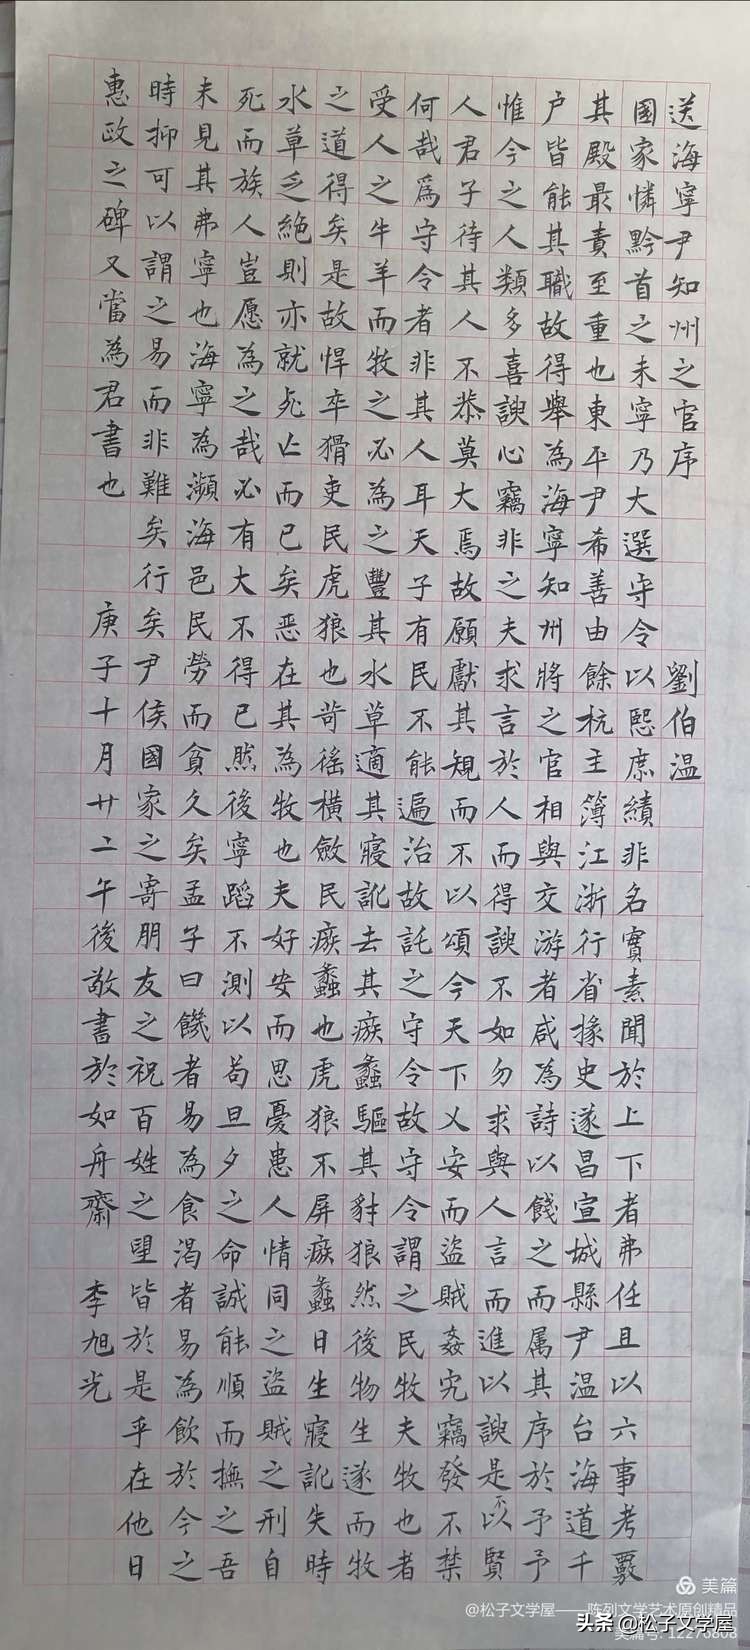 送海寧尹知州之官序 劉伯温
國家憐黔首之未寧乃大選守令以熙庶績非名實素聞於上下者弗任且以六事考覈
其殿最責至重也東平尹希善由餘杭主簿江浙行省掾史遂昌宣城縣尹温台海道千
户皆能其職故得舉為海寧知州將之官相與交游者咸為詩以餞之而属其序於予予
惟今之人類多喜諛心竊非之夫求言於人而得諛不如勿求與人言而進以諛是不以賢
人君子待其人不恭莫大焉故願獻其規而不以頌今天下乂安而盜賊姦宄竊發不禁
何哉爲守令者非其人耳天子有民不能遍治故託之守令故守令謂之民牧夫牧也者
受人之牛羊而牧之必為之豐其水草適其寢訛去其瘯蠡驅其豺狼然後物生遂而牧
之道得矣是故悍卒猾吏民虎狼也苛徭橫斂民瘯蠡也虎狼不屏瘯蠡日生寢訛失時
水草乏絕則亦就死亡而已矣恶在其為牧也夫好安而思憂患人情同之盜賊之刑自
死而族人豈愿為之哉必有大不得已然後寧蹈不測以苟旦夕之命誠能順而撫之吾
未見其弗寧也海寧為瀕海邑民勞而貧久矣孟子曰饑者易為食渴者易為飲於今之
時抑可以謂之易而非難矣行矣尹侯國家之寄朋友之祝百姓之望皆於是乎在他日
惠政之碑又當為君書也 庚子十月廿二午後敬書於如舟齋 李旭光
美篇
@松子文学屋——陈列文学艺术原创精品
美篇号: 12276808
头条 @松子文学屋